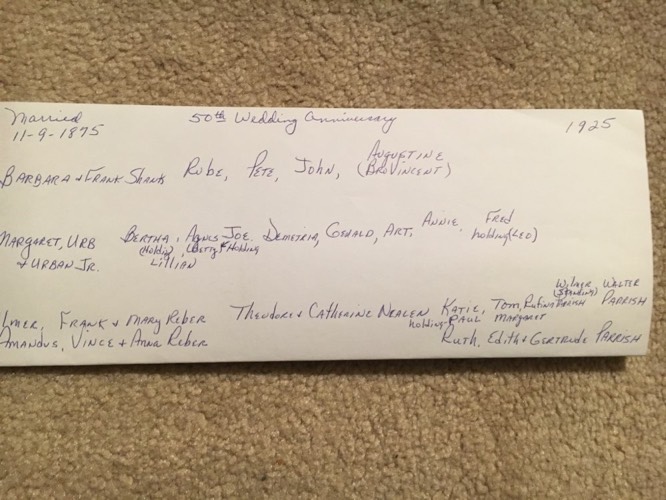 Married 50th Wedding Anniversary 1925
11-9-1875
Augustine
Barbara & Frank Shank Rube, Pete, John, (Bro Vincent)
Margaret, Urb Bertha, Agnes Joe, Demetria, Gerald, Art, Annie, Fred
(Holding) (Betty) Holding holding (Leo)
& Urban Jr. Lillian
Wilmer Walter
(Standing)
lmer, Frank & Mary Reber Theodore & Catherine Nealen Katie, Tom, Rufina Parrish Parrish
holding Paul Margaret
Amandus, Vince & Anna Reber Ruth, Edith & Gertrude Parrish